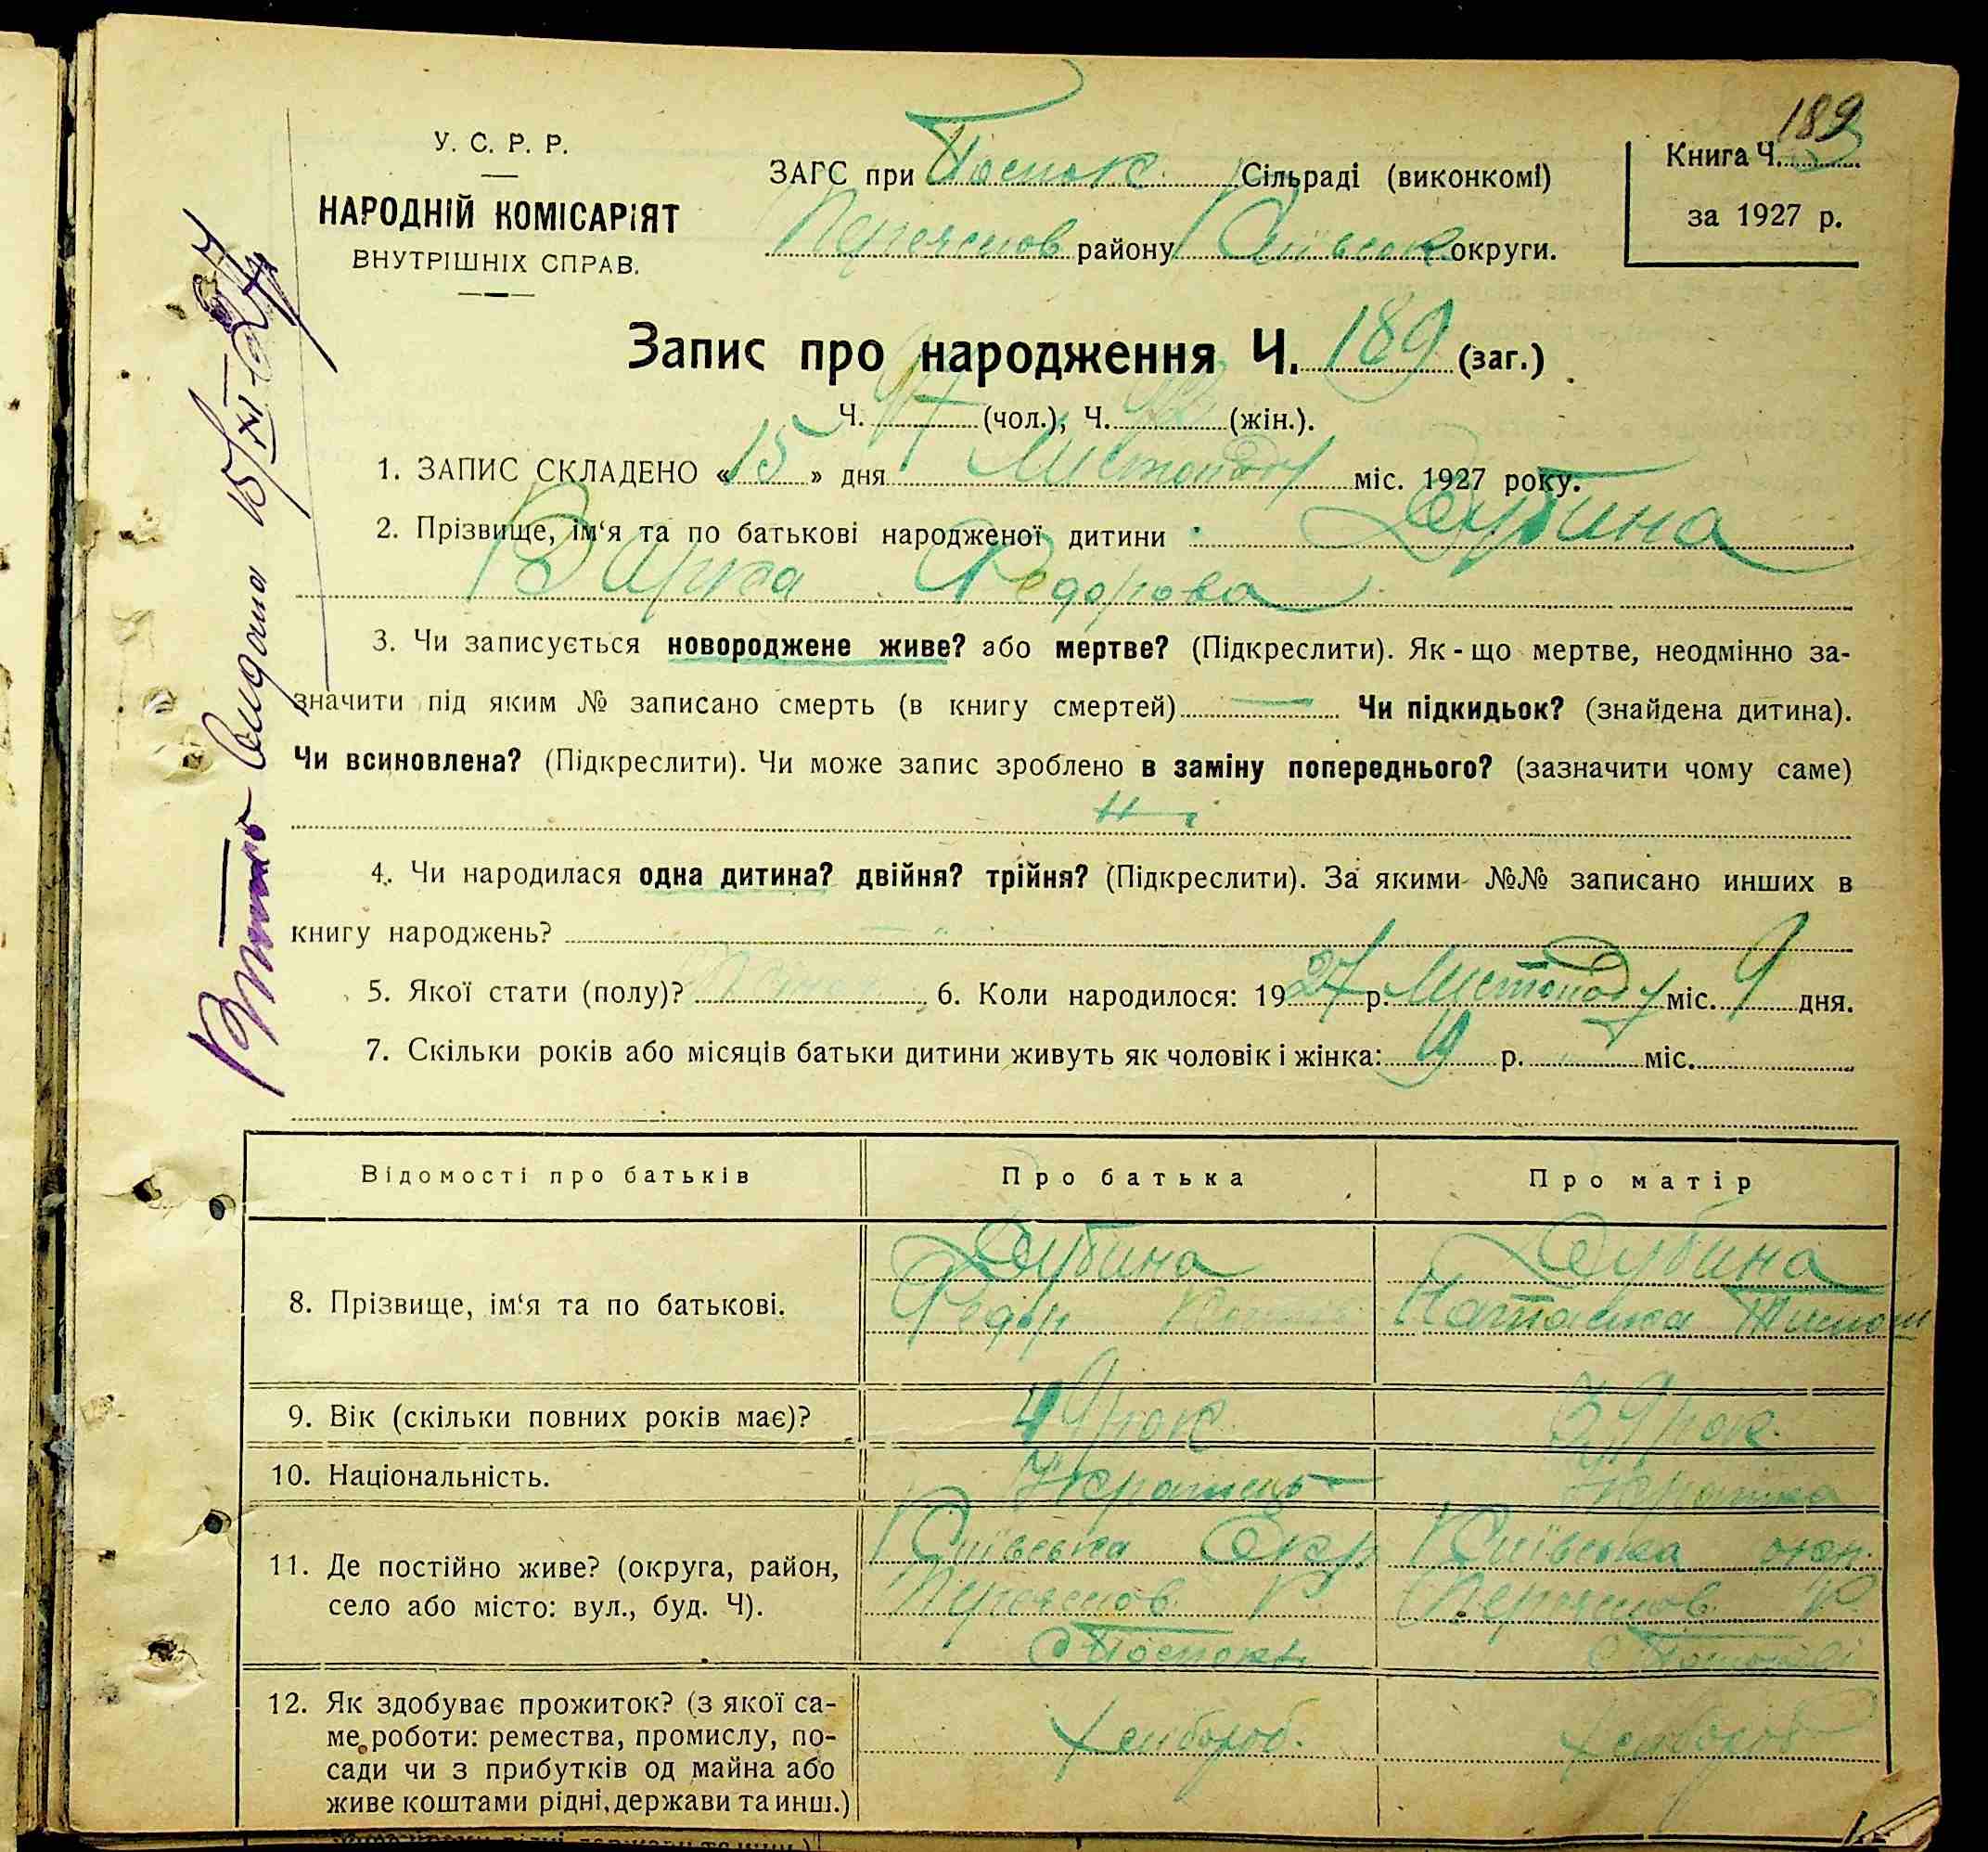 189
У. С. Р. Р.
НАРОДНІЙ КОМІСАРІЯТ
ВНУТРІШНІХ СПРАВ.
ЗАГС при Сільраді (виконкомі)
Переяслов району Київськ. округи.
Книга Ч.
за 1927 р.
Запис про народження Ч. 189 (заг.)
Ч. 97 (чол.), Ч. 92 (жін.).
1. ЗАПИС СКЛАДЕНО «15» дня Листопаду міс. 1927 року.
2. Прізвище, ім‘я та по батькові народженої дитини Дубина
Варка Федорова
3. Чи записується новороджене живе? або мертве? (Підкреслити). Як-що мертве, неодмінно за-
значити під яким № записано смерть (в книгу смертей) — Чи підкидьок? (знайдена дитина).
Чи всиновлена? (Підкреслити). Чи може запис зроблено в заміну попереднього? (зазначити чому саме)
4. Чи народилася одна дитина? двійня? трійня? (Підкреслити). За якими №№ записано инших в
книгу народжень?
5. Якої стати (полу)? 6. Коли народилося: 1927 р. Листопаду міс. 9 дня.
7. Скільки років або місяців батьки дитини живуть як чоловік і жінка: р. міс.
Відомості про батьків
Про батька
Про матір
8. Прізвище, ім‘я та по батькові.
Дубина
Федор
Дубина
Наталка Тимош
9. Вік (скільки повних років має)?
49 рок
39 рок.
10. Національність.
Українець
Українка
11. Де постійно живе? (округа, район,
село або місто: вул., буд. Ч).
Київська Окр.
Переяслов. Р.
Київська окр.
Переяслов. Р.
12. Як здобуває прожиток? (з якої са-
ме роботи: ремества, промислу, по-
сади чи з прибутків од майна або
живе коштами рідні, держави та инш.)
хлібороб.
хлібороб
Витяг видано 15/XI-27